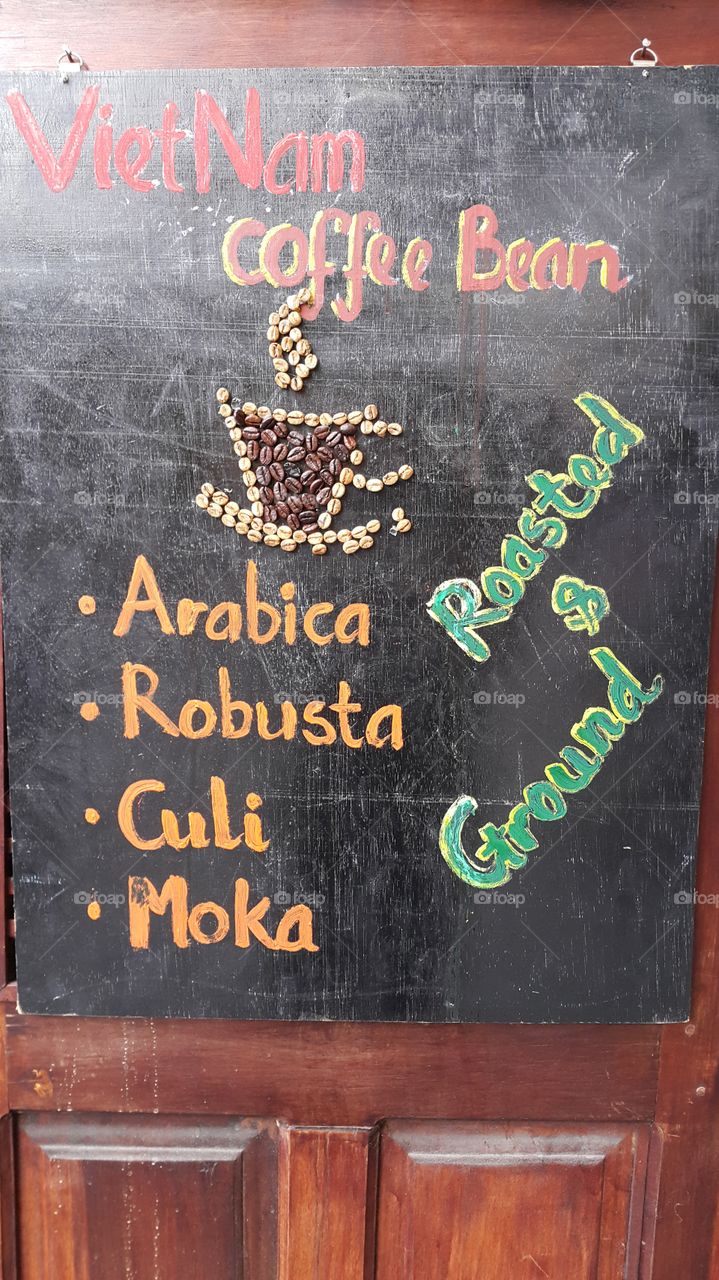 VietNam
coffee Bean
• Arabica
• Robusta
• Culi
• Moka
Roasted
&
Ground
foap